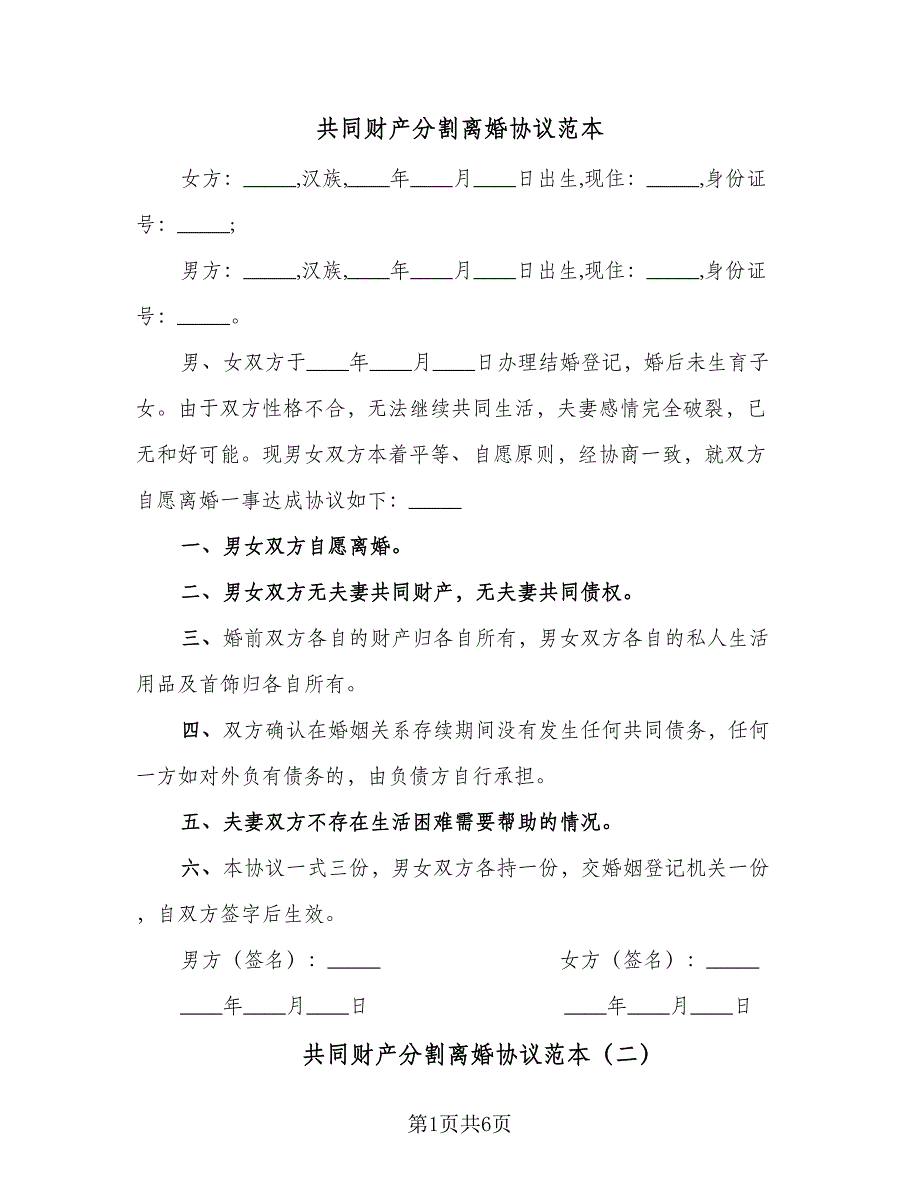 共同财产分割离婚协议范本
女方：_____,汉族,____年____月____日出生,现住：_____,身份证
号：_____;
男方：_____,汉族,____年____月____日出生,现住：_____,身份证
号：_____。
男、女双方于____年____月____日办理结婚登记，婚后未生育子
女。由于双方性格不合，无法继续共同生活，夫妻感情完全破裂，已
无和好可能。现男女双方本着平等、自愿原则，经协商一致，就双方
自愿离婚一事达成协议如下：_____
一、男女双方自愿离婚。
二、男女双方无夫妻共同财产，无夫妻共同债权。
三、婚前双方各自的财产归各自所有，男女双方各自的私人生活
用品及首饰归各自所有。
四、双方确认在婚姻关系存续期间没有发生任何共同债务，任何
一方如对外负有债务的，由负债方自行承担。
五、夫妻双方不存在生活困难需要帮助的情况。
六、本协议一式三份，男女双方各持一份，交婚姻登记机关一份
，自双方签字后生效。
男方（签名）：_____ 女方（签名）：_____
____年____月____日 ____年____月____日
共同财产分割离婚协议范本（二）
第1页共6页